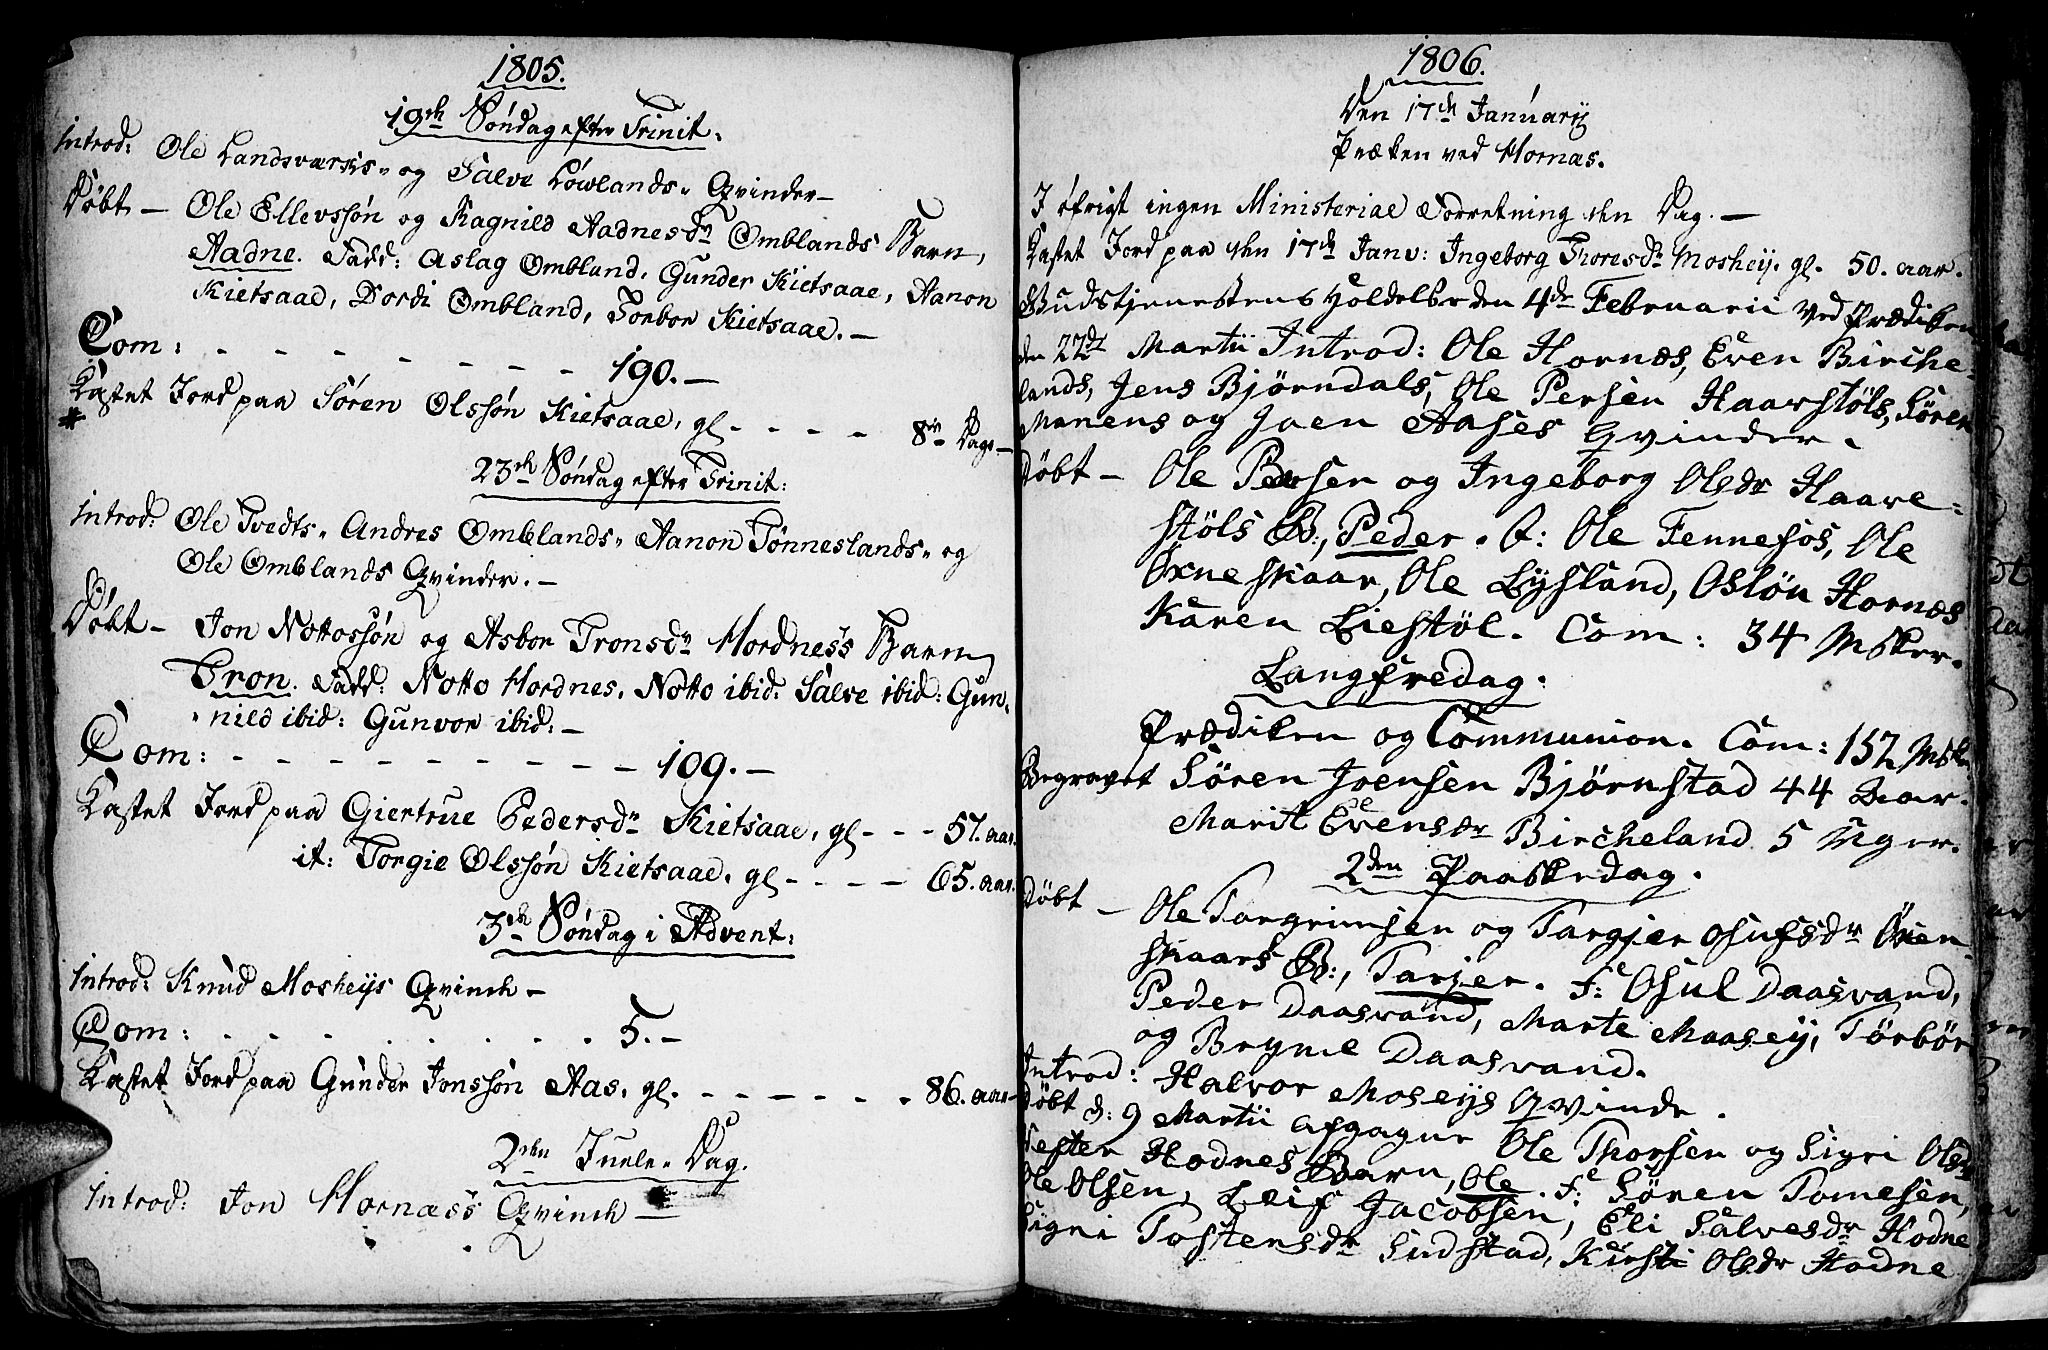 1805.
19de Søndag efter Trinit:
Introd: Ole Landsværks- og Salve Løwlands- Qvinder-
Døbt - Ole Ellevssøn og Ragnild Aadnesdr Omblands Barn,
Aadne. Fadd: Aslag Ombland. Gunder Kietsaae, Aanon
Kietsaae, Dordi Ombland, Torbor Kietsaae. -
Com: - - - - - - - - 190. -
Kastet Jord paa Søren Olssøn Kietsaae, gl - - - - 8te Dage -
23de Søndag efter Trinit:
Introd: Ole Tvedts- Andres Omblands- Aanon Tønneslands- og
Ole Omblands Qvinder. -
Døbt - Jon Nottossøn og Asbor Tronsdr Hordness Barn
Tron. Fadd: Notto Hordnes. Notto ibid: Salve ibid: Gun-
nild ibid: Gunvor ibid: -
Com: - - - - - - - - - - 109. -
Kastet Jord paa Giertrue Pedersdr Kietsaae, gl - - - 57. aar.
it: Torgie Olssøn Kietsaae, gl - - - - 65. aar.
3de Søndag i Advent:
Introd: Knud Mosheys Qvinde -
Com: - - - - - - - - - 5. -
Kastet Jord paa Gunder Jonssøn Aas, gl. - - - - - - 86. aar -
2den Juele- Dag.
Introd: Jon Hornæss Qvinde -
1806.
Den 17de Januarij
Præken ved Hornæs.
I øfrigt ingen Ministerial Forretning den Dag. -
Kastet Jord paa den 17de Janv: Ingeborg Thoresdr Moshey. gl. 50. aar.
Gudstjenestens Holdelse den 4de Februarii ved Prædiken
den 22de Martii Introd: Ole Hornæs, Even Birche-
lands, Jens Bjørndals, Ole Persen Haarstøls, Sören
Manens og Joen Aases Qvinder.
Døbt - Ole Persen og Ingeborg Olsdr Haare-
støls B:, Peder. F: Ole Fennefos, Ole
Oxneskaar, Ole Lysland, Osløu Hornæs
Karen Liestøl. Com: 34 Msker.
Langfredag.
Prædiken og Communion. Com: 152 Msk.
Begravet Sören Joensen Bjørnstad 44 Aar.
Marit Evensdr Bircheland 5 Uger.
2den Paaskedag.
Døbt - Ole Targrimsen og Targjer Osufsdr Öxen-
skaars B:, Tarjer. F: Osul Daasvand,
Peder Daasvand, Marte Maasey, Törbör
og Bryne Daasvand.
Introd: Halvor Moseys Qvinde.
Døbt d: 9 Martii afgagne Ole Thorsen og Sigri Olsdr
Vester Hodnes Barn, Ole. F: Sören Tomesen,
Ole Olsen, Leif Jacobsen, Eli Salvesdr Hodne
Sigri Tostensdr Sudstad, Kirsti Olsdr Hodne